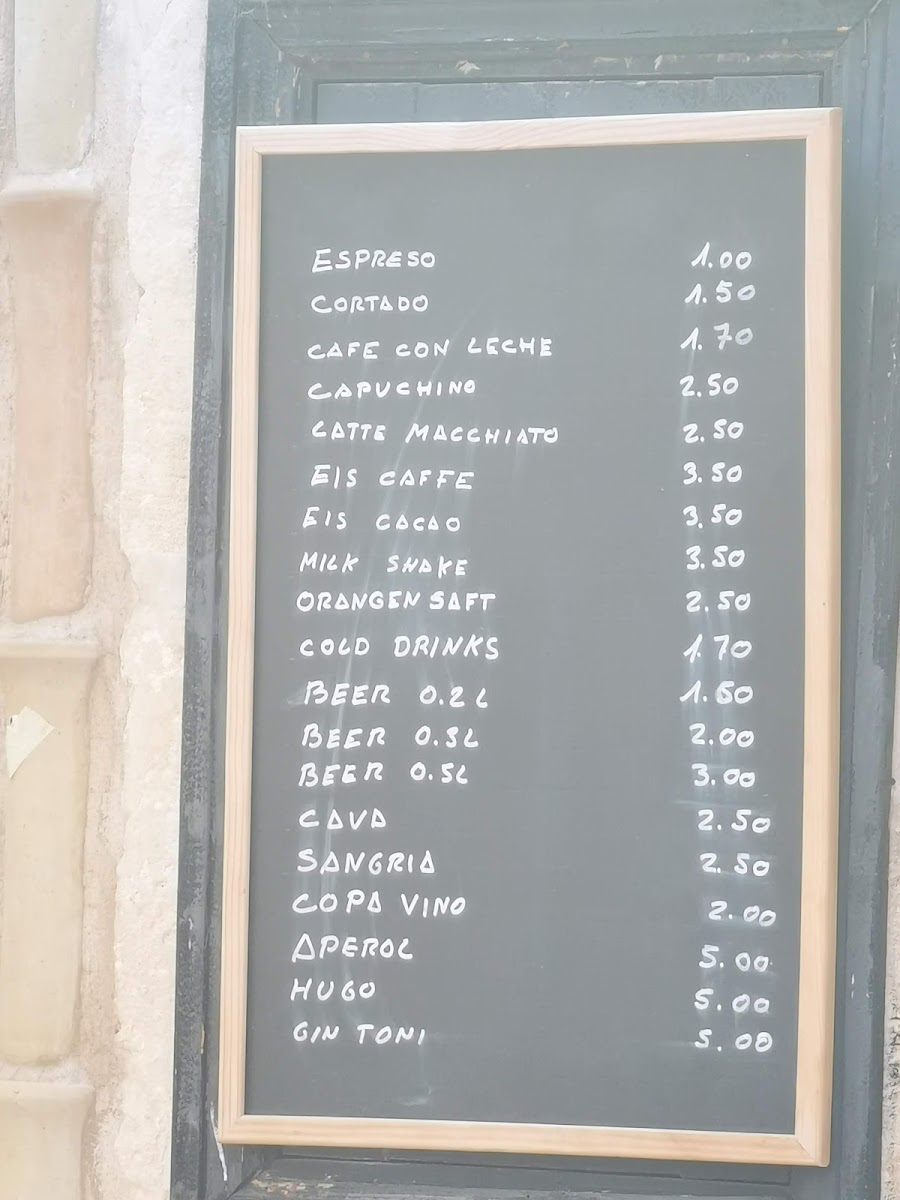 ESPRESO 1.00
CORTADO 1.50
CAFE CON LECHE 1.70
CAPUCHINO 2.50
LATTE MACCHIATO 2.50
EIS CAFFE 3.50
EIS CACAO 3.50
MILK SHAKE 3.50
ORANGEN SAFT 2.50
COLD DRINKS 1.70
BEER 0.2L
BEER 0.3L 2.00
BEER 0.5L 3.00
CAVA 2.50
SANGRIA 2.50
COPA VINO 2.00
APEROL 5.00
HUGO 5.00
GIN TONI 5.00